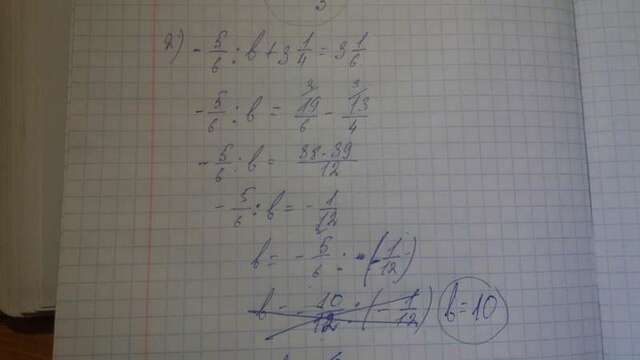 2) - 5/6 : b + 3 1/4 = 3 1/6
- 5/6 : b = 19/6 - 13/4
- 5/6 : b = 38-39/12
- 5/6 : b = - 1/12
b = - 5/6 : (- 1/12)
b - 10/12 : (- 1/12) b = 10